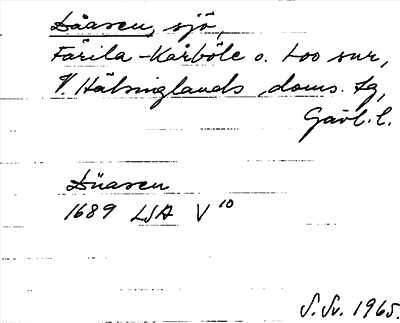 Dåasen, sjö,
Färila-Kårböle o. Loo snr,
V. Hälsinglands doms. tg,
Gävl. l.
Dűasen
1689 LSA V 10
S. Sv. 1965.